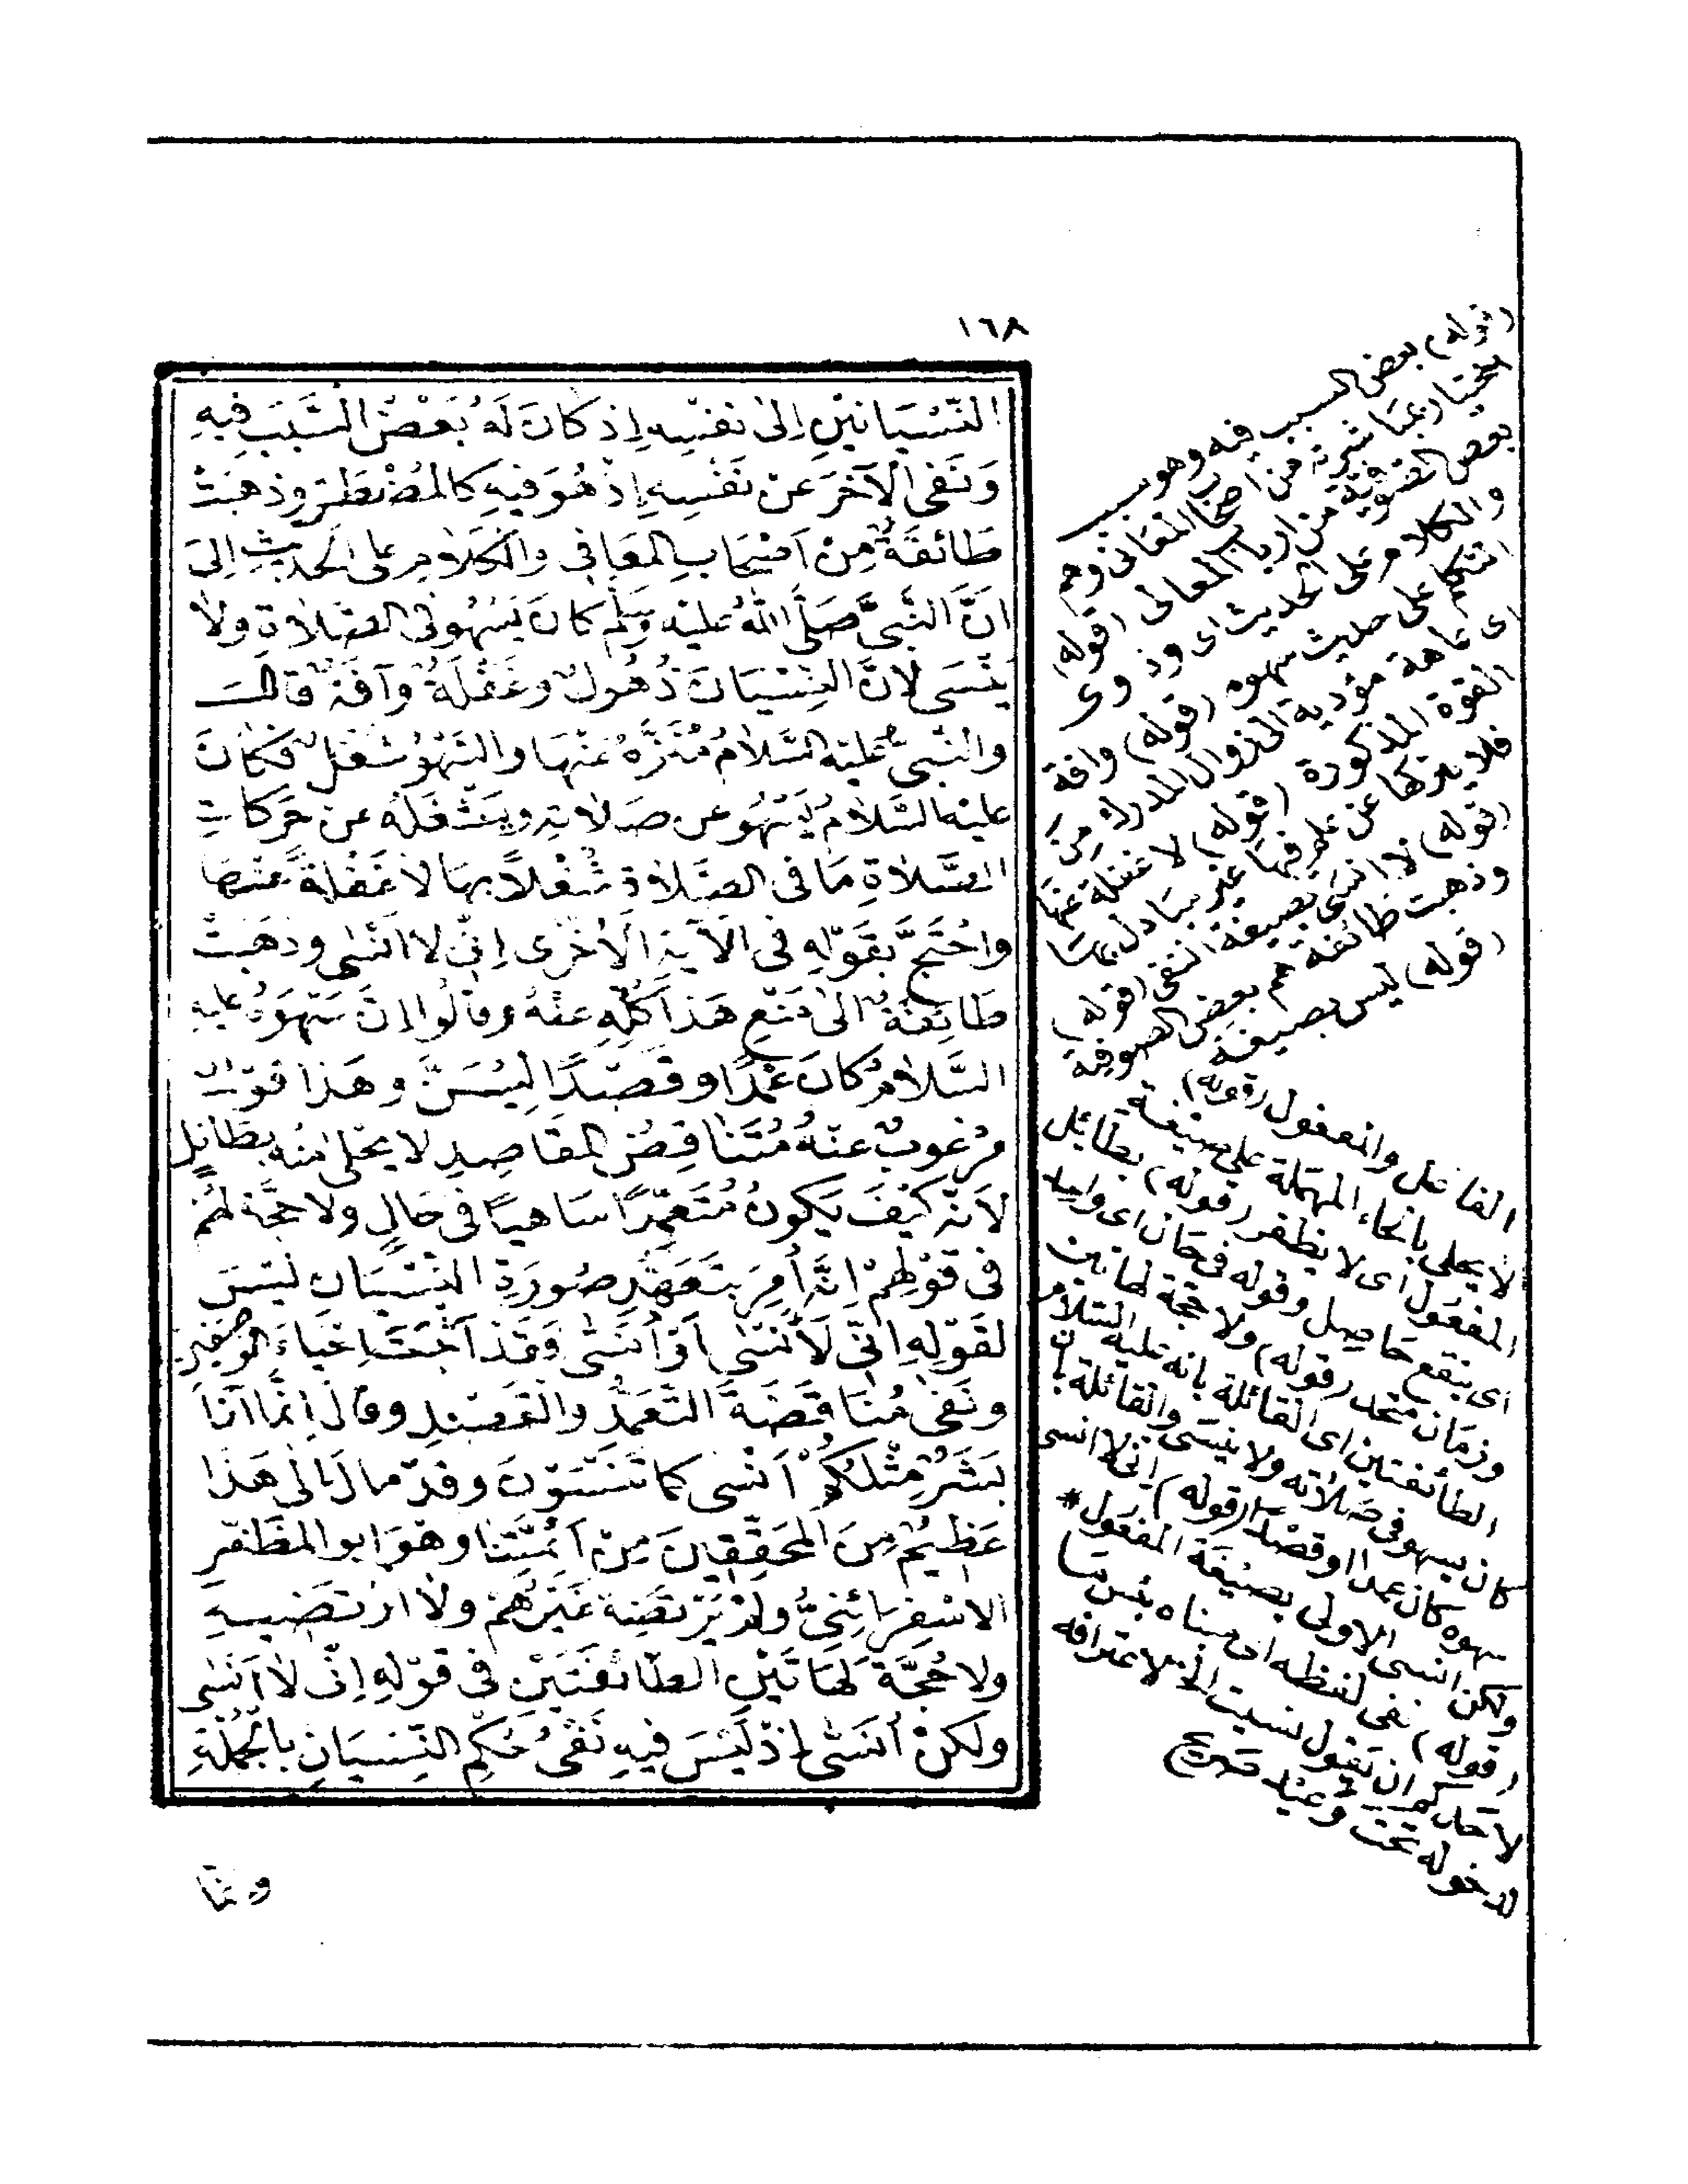 ١٦٨
النِّسْيَانَيْنِ إِلَىٰ نَفْسِهِ إِذْ كَانَ لَهُ بَعْضُ السَّبَبِ فِيهِ
وَنَفَى الْآخَرَ عَنْ نَفْسِهِ إِذْ هُوَ فِيهِ كَالْمُضْطَرِّ وَذَهَبَتْ
طَائِفَةٌ مِنْ أَصْحَابِ الْمَعَانِي وَالْكَلَامِ عَلَى الْحَدِيثِ إِلَىٰ
أَنَّ النَّبِيَّ صَلَّى اللهُ عَلَيْهِ وَسَلَّمَ كَانَ يَسْهُو فِي الصَّلَاةِ وَلَا
يَنْسَى لِأَنَّ النِّسْيَانَ ذُهُولٌ وَغَفْلَةٌ وَآفَةٌ قَالَ
وَالنَّبِيُّ عَلَيْهِ السَّلَامُ مُنَزَّهٌ عَنْهَا وَالسَّهْوُ شُغْلٌ فَكَانَ
عَلَيْهِ السَّلَامُ يَسْهُو عَنْ صَلَاتِهِ وَيَشْغَلُهُ عَنْ حَرَكَاتِ
الصَّلَاةِ مَا فِي الصَّلَاةِ شُغْلًا بِهَا لَا غَفْلَةً عَنْهَا
وَاحْتَجَّ بِقَوْلِهِ فِي الْآيَةِ الْأُخْرَى إِنِّي لَا أَنْسَى وَذَهَبَتْ
طَائِفَةٌ إِلَىٰ مَنْعِ هَذَا كُلِّهِ عَنْهُ وَقَالُوا إِنَّ سَهْوَهُ عَلَيْهِ
السَّلَامُ كَانَ عَمْدًا وَقَصْدًا لِيَسُنَّ وَهَذَا قَوْلٌ
مَرْغُوبٌ عَنْهُ مُتَنَاقِضُ الْمَقَاصِدِ لَا يُحْلَى مِنْهُ بِطَائِلٍ
لِأَنَّهُ كَيْفَ يَكُونُ مُتَعَمِّدًا سَاهِيًا فِي حَالٍ وَلَا حُجَّةَ لَهُمْ
فِي قَوْلِهِمْ إِنَّهُ أُمِرَ بِتَعَمُّدِ صُورَةِ النِّسْيَانِ لِيَسُنَّ
لِقَوْلِهِ إِنِّي لَأَنْسَى أَوْ أُنَسَّى وَقَدْ أَثْبَتَ أَحَدَ الْوَصْفَيْنِ
وَنَفَى مُنَاقَضَةَ التَّعَمُّدِ وَالْقَصْدِ وَقَالَ إِنَّمَا أَنَا
بَشَرٌ مِثْلُكُمْ أَنْسَى كَمَا تَنْسَوْنَ وَقَدْ مَالَ إِلَىٰ هَذَا
عَظِيمٌ مِنَ الْمُحَقِّقِينَ مِنْ أَئِمَّتِنَا وَهُوَ أَبُو الْمُظَفَّرِ
الْاسْفَرَائِنِيُّ وَلَمْ يَرْتَضِهِ غَيْرُهُمْ وَلَا أَرْتَضِيهِ
وَلَا حُجَّةَ لِهَاتَيْنِ الطَّائِفَتَيْنِ فِي قَوْلِهِ إِنِّي لَا أَنْسَى
وَلَكِنْ أُنَسَّى إِذْ لَيْسَ فِيهِ نَفْيُ حُكْمِ النِّسْيَانِ بِالْجُمْلَةِ
(قوله) بعض السبب فيه وهو
بعض الصوفية من ارباب المعانى (قوله)
والكلام على الحديث اى وذ وى
التكلم على حديث سهوه (قوله) وافة
اى عاهة مؤدية الى زوال المدرك من
القوة المذكورة (قوله) لا غفلة عنها
(قوله) لا انسى بصيغة النفى (قوله)
وذهبت طائفة هم بعض الصوفية
(قوله) ليس بصيغة
الفاعل والمفعول (قوله)
لا يحلى بالحاء المهملة على صيغة
المفعول اى لا يظفر (قوله) بطائل
اى بنفع حاصل وقوله فى حال اى واحد
وزمان متحد (قوله) ولا حجة لهاتين
الطائفتين اى القائلة بانه عليه السلام
كان يسهو فى صلاته ولا ينسى والقائلة بان
سهوه كان عمدا او قصدا (قوله) انى لا انسى
ولكن انسى الاولى بصيغة المفعول *
(قوله) نفى لفظه اى مبناه بئس ما
لاحدكم ان يقول نسيت الخ لاعترافه
لدخوله تحت وعيد صريح